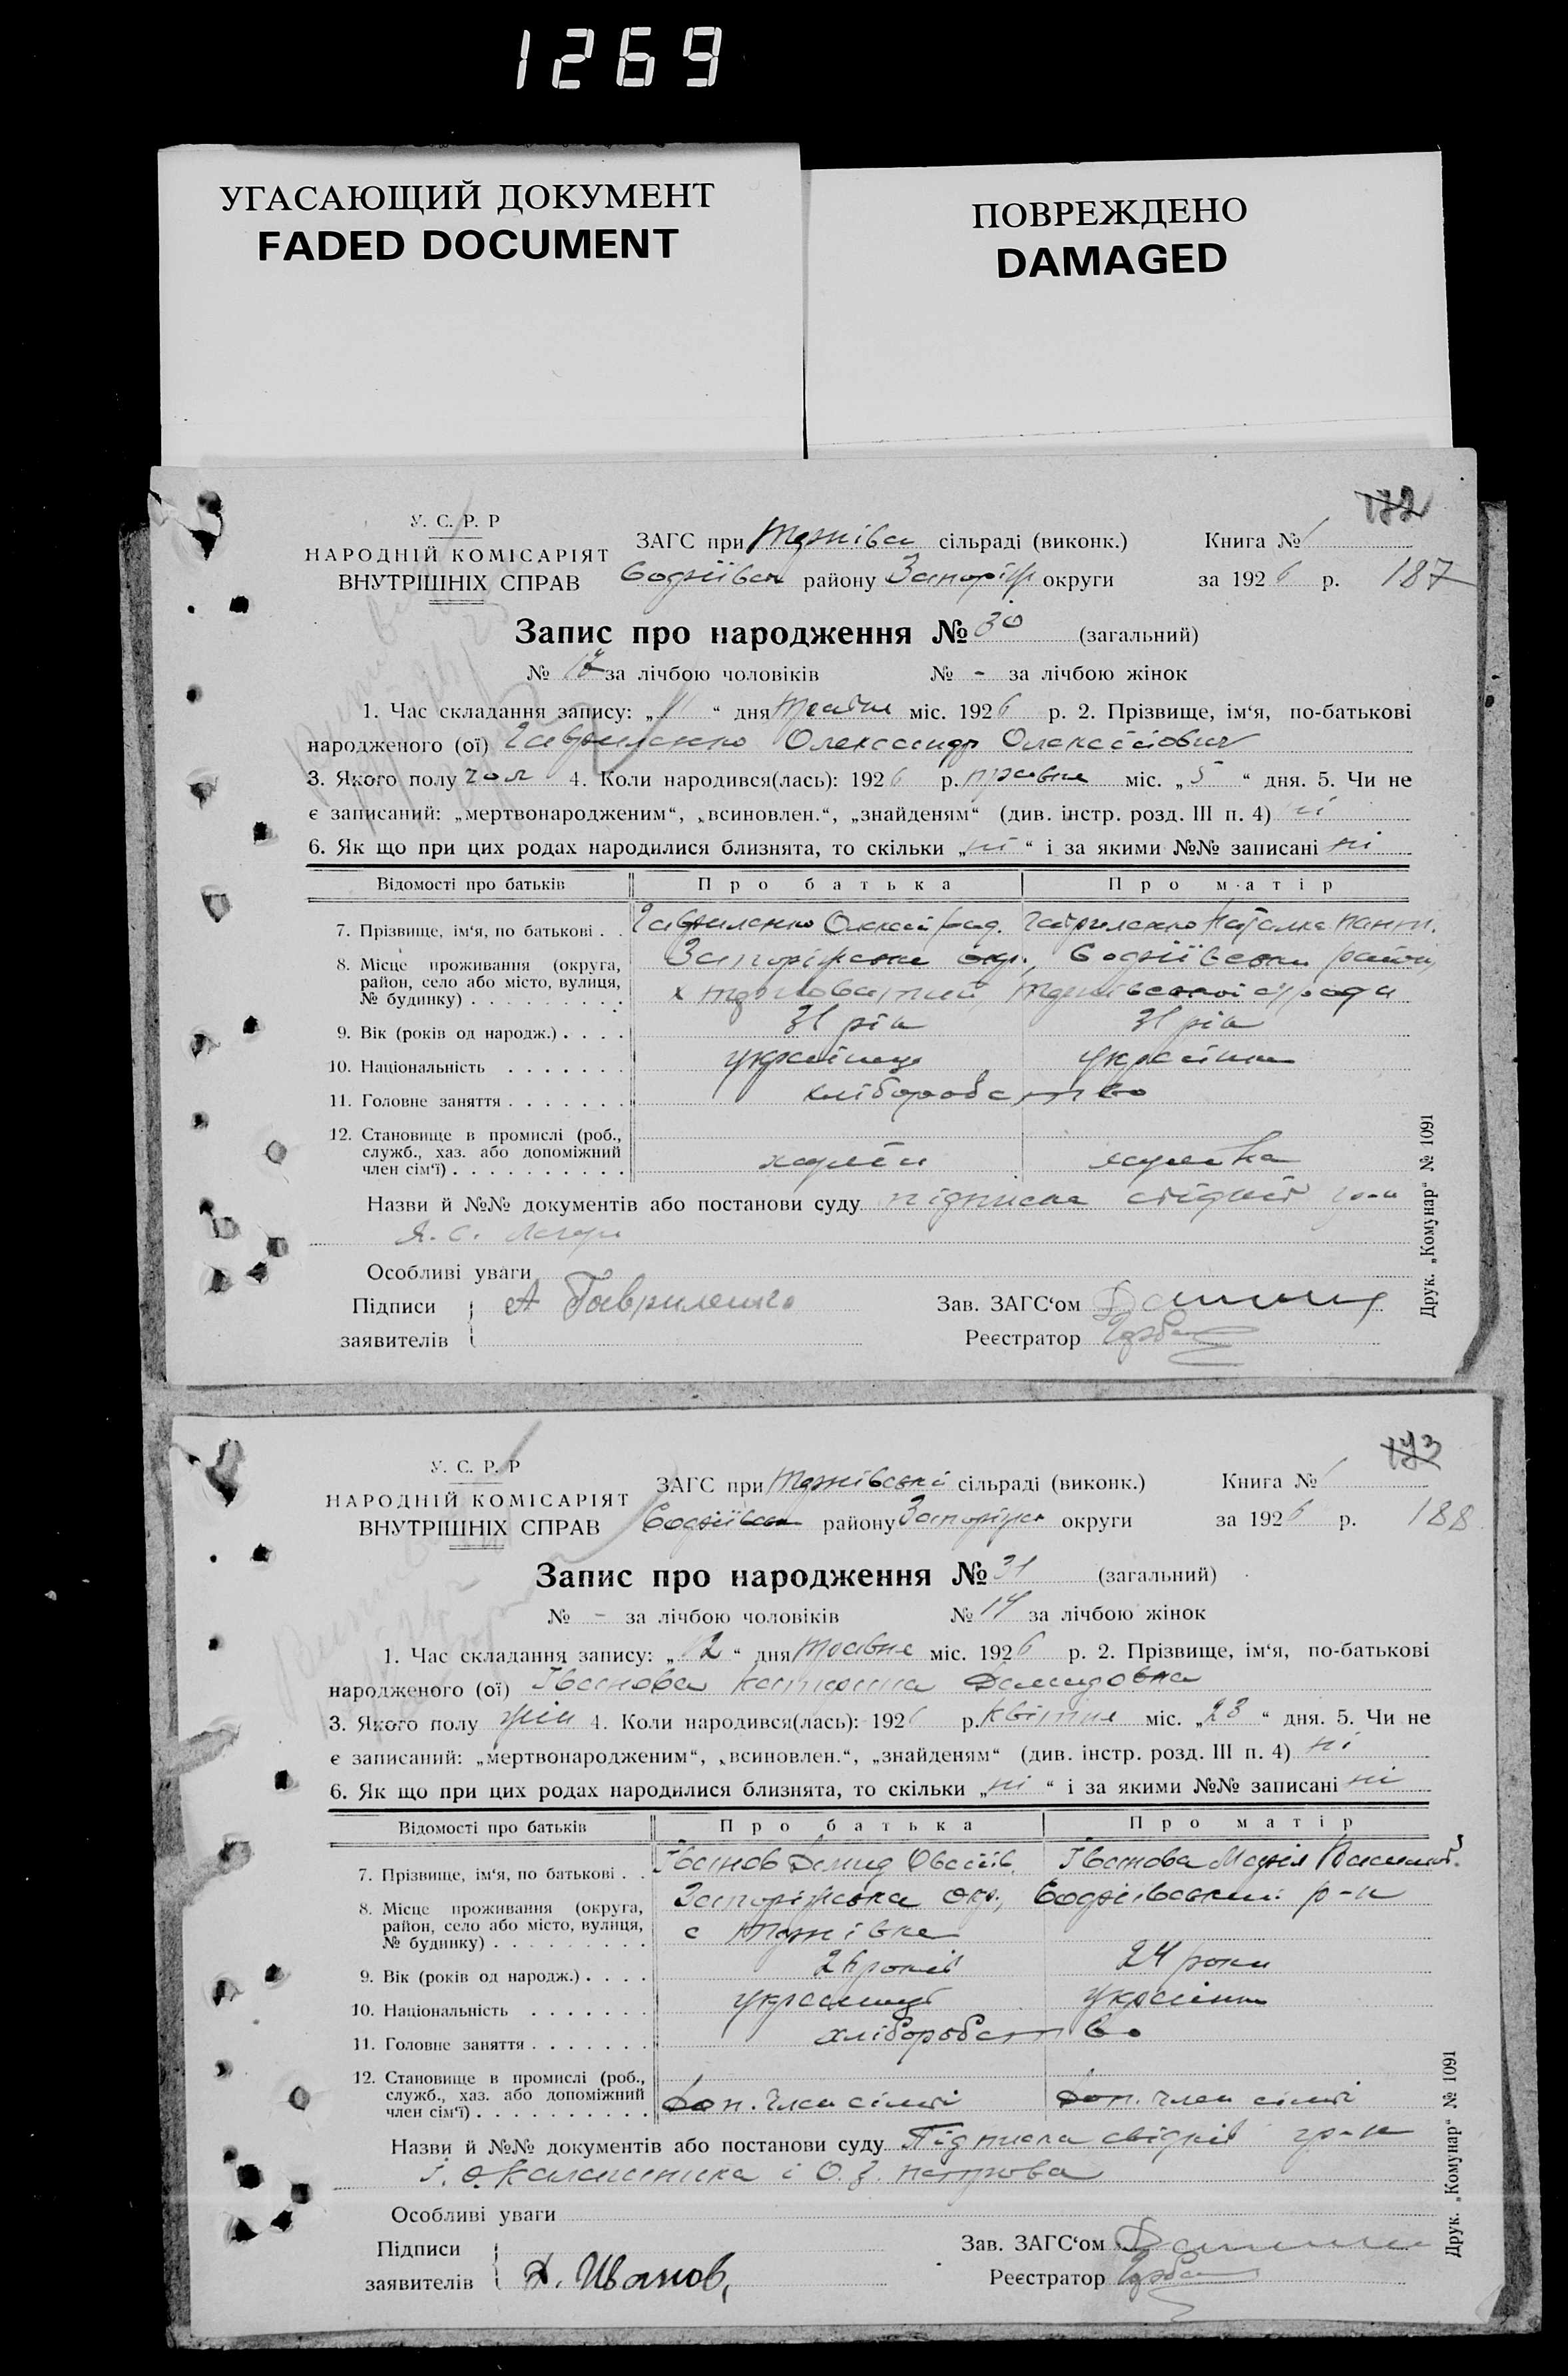 1269
УГАСАЮЩИЙ ДОКУМЕНТ
FADED DOCUMENT
ПОВРЕЖДЕНО
DAMAGED
172
У. С. Р. Р
НАРОДНІЙ КОМІСАРІЯТ
ВНУТРІШНІХ СПРАВ
ЗАГС при сільраді (виконк.) Книга № 1
району Запоріж округи за 1926 р. 187
Запис про народження № 30 (загальний)
№ за лічбою чоловіків № - за лічбою жінок
1. Час складання запису: „11“ дня травня міс. 1926 р. 2. Прізвище, ім‘я, по-батькові
народженого (ої) Гавриленко Олександр Олексійович
3. Якого полу чол 4. Коли народився(лась): 1926 р. травня міс. „5“ дня. 5. Чи не
є записаний: „мертвонародженим“, „всиновлен.“, „знайденям“ (див. інстр. розд. III п. 4) ні
6. Як що при цих родах народилися близнята, то скільки „ні“ і за якими №№ записані ні
Відомості про батьків Про батька Про матір
7. Прізвище, ім‘я, по батькові . . Гавриленко Олексій Гавриленко Наталка
8. Місце проживання (округа, район, село або місто, вулиця, № будинку) . . . . . . . . . Запоріжська окр., район,
9. Вік (років од народж.) . . . . 31 рік 31 рік
10. Національність . . . . . . . українець українка
11. Головне заняття . . . . . . . хліборобство
12. Становище в промислі (роб., служб., хаз. або допоміжний член сім‘ї) . . . . . . . . . .
Назви й №№ документів або постанови суду підписка свідків гр-н
Я. С.
Особливі уваги
Підписи
заявителів
А Гавриленко
Зав. ЗАГС‘ом
Реєстратор
Друк. „Комунар“ № 1091
173
У. С. Р. Р
НАРОДНІЙ КОМІСАРІЯТ
ВНУТРІШНІХ СПРАВ
ЗАГС при сільраді (виконк.) Книга № 1
району Запоріжс округи за 1926 р. 188
Запис про народження № 31 (загальний)
№ - за лічбою чоловіків № 14 за лічбою жінок
1. Час складання запису: „12“ дня травня міс. 1926 р. 2. Прізвище, ім‘я, по-батькові
народженого (ої) Іванова Катерина Демидовна
3. Якого полу жін 4. Коли народився(лась): 1926 р. квітня міс. „23“ дня. 5. Чи не
є записаний: „мертвонародженим“, „всиновлен.“, „знайденям“ (див. інстр. розд. III п. 4) ні
6. Як що при цих родах народилися близнята, то скільки „ні“ і за якими №№ записані ні
Відомості про батьків Про батька Про матір
7. Прізвище, ім‘я, по батькові . . Іванов Демид Іванова Марія
8. Місце проживання (округа, район, село або місто, вулиця, № будинку) . . . . . . . . . Запоріжська окр., р-н
9. Вік (років од народж.) . . . . 26 років 24 роки
10. Національність . . . . . . . українець українка
11. Головне заняття . . . . . . . хліборобство
12. Становище в промислі (роб., служб., хаз. або допоміжний член сім‘ї) . . . . . . . . . . Доп. член сімї Доп. член сімї
Назви й №№ документів або постанови суду Підписка свідків гр-н
Особливі уваги
Підписи
заявителів
Д. Иванов,
Зав. ЗАГС‘ом
Реєстратор
Друк. „Комунар“ № 1091